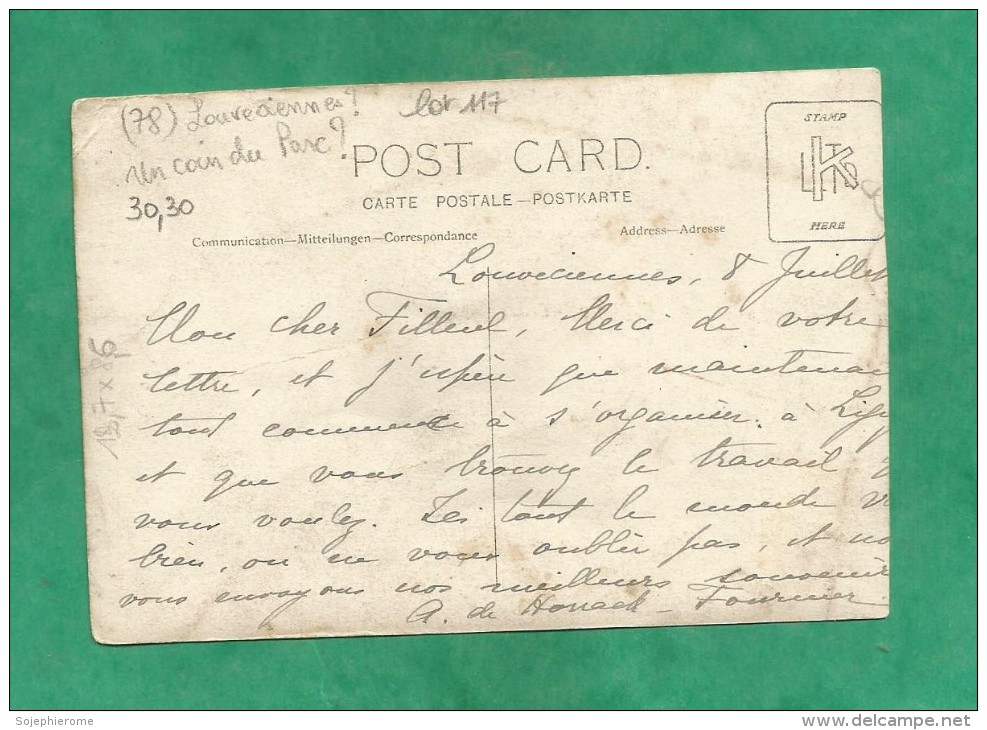 (78) Louveciennes?
lot 117
Un coin du Parc?
30,30
POST CARD.
CARTE POSTALE—POSTKARTE
Communication—Mitteilungen—Correspondance
Address—Adresse
STAMP
HERE
Louveciennes, 8 Juillet
Mon cher Filleul, Merci de votre
lettre, et j'espère que maintenan
tout commence à s'organiser à
et que vous trouvez le travail q
vous voulez. Ici tout le monde v
bien, on ne vous oublie pas, et no
vous envoyons nos meilleurs souvenir
A. de Fournier
Sojephierome
www.delcampe.net